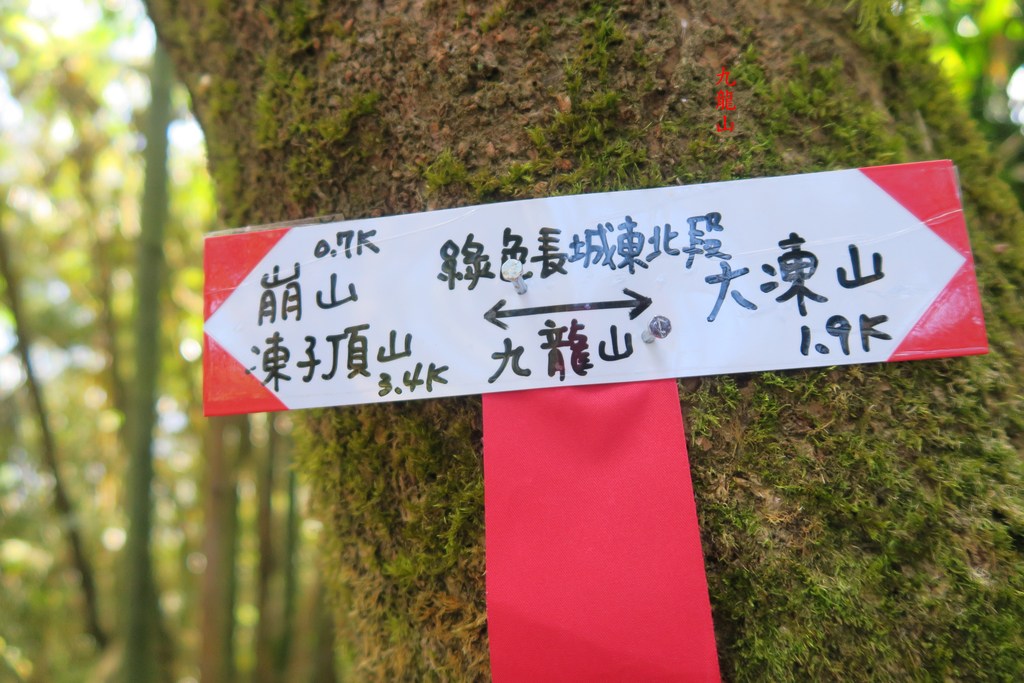 九龍山
0.7K
崩山
凍子頂山
3.4K
綠色長城東北段
九龍山
大凍山
1.9K